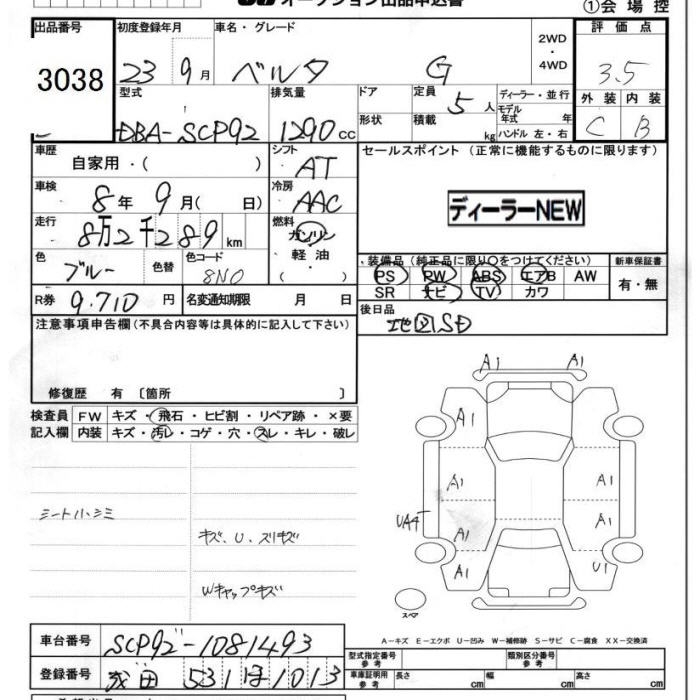 オークション出品申込書
①会場控
出品番号 初度登録年月 車名・グレード 2WD ・ 4WD 評価点
3038 23 9月 ベルタ G 3.5
型式 排気量 ドア 定員 5人 ディーラー・並行 外装 内装
DBA-SCP92 1290 cc 形状 積載 kg モデル年式 年 ハンドル 左・右 C B
車歴 自家用・( ) シフト AT セールスポイント (正常に機能するものに限ります)
車検 8年 9月( 日) 冷房 AAC ディーラーNEW
走行 8万2千289 km 燃料 ガソリン ・ 軽油 ・ ( )
色 ブルー 色替 色コード 8N0
装備品 (純正品に限り○をつけてください) 新車保証書
PS PW ABS エアB AW 有・無
SR ナビ TV カワ
R券 9,710 円 名変通知期限 月 日 後日品
地図SD
注意事項申告欄(不具合内容等は具体的に記入して下さい)
修復歴 有 〔箇所 〕
検査員 FW キズ・飛石・ヒビ割・リペア跡・×要
記入欄 内装 キズ・汚レ・コゲ・穴・スレ・キレ・破レ
シートハンシミ
キズ、U、スリキズ
Wキャップキズ
A1 A1
A1
A1 A1
UA4T A1 A1
A1 U1
スペア
A-キズ E-エクボ U-凹み W-補修跡 S-サビ C-腐食 XX-交換済
車台番号 SCP92-1081493
型式指定番号 参考 類別区分番号 参考
登録番号 531 ほ 1013
車庫証明用 参考 長さ cm 幅 cm 高さ cm